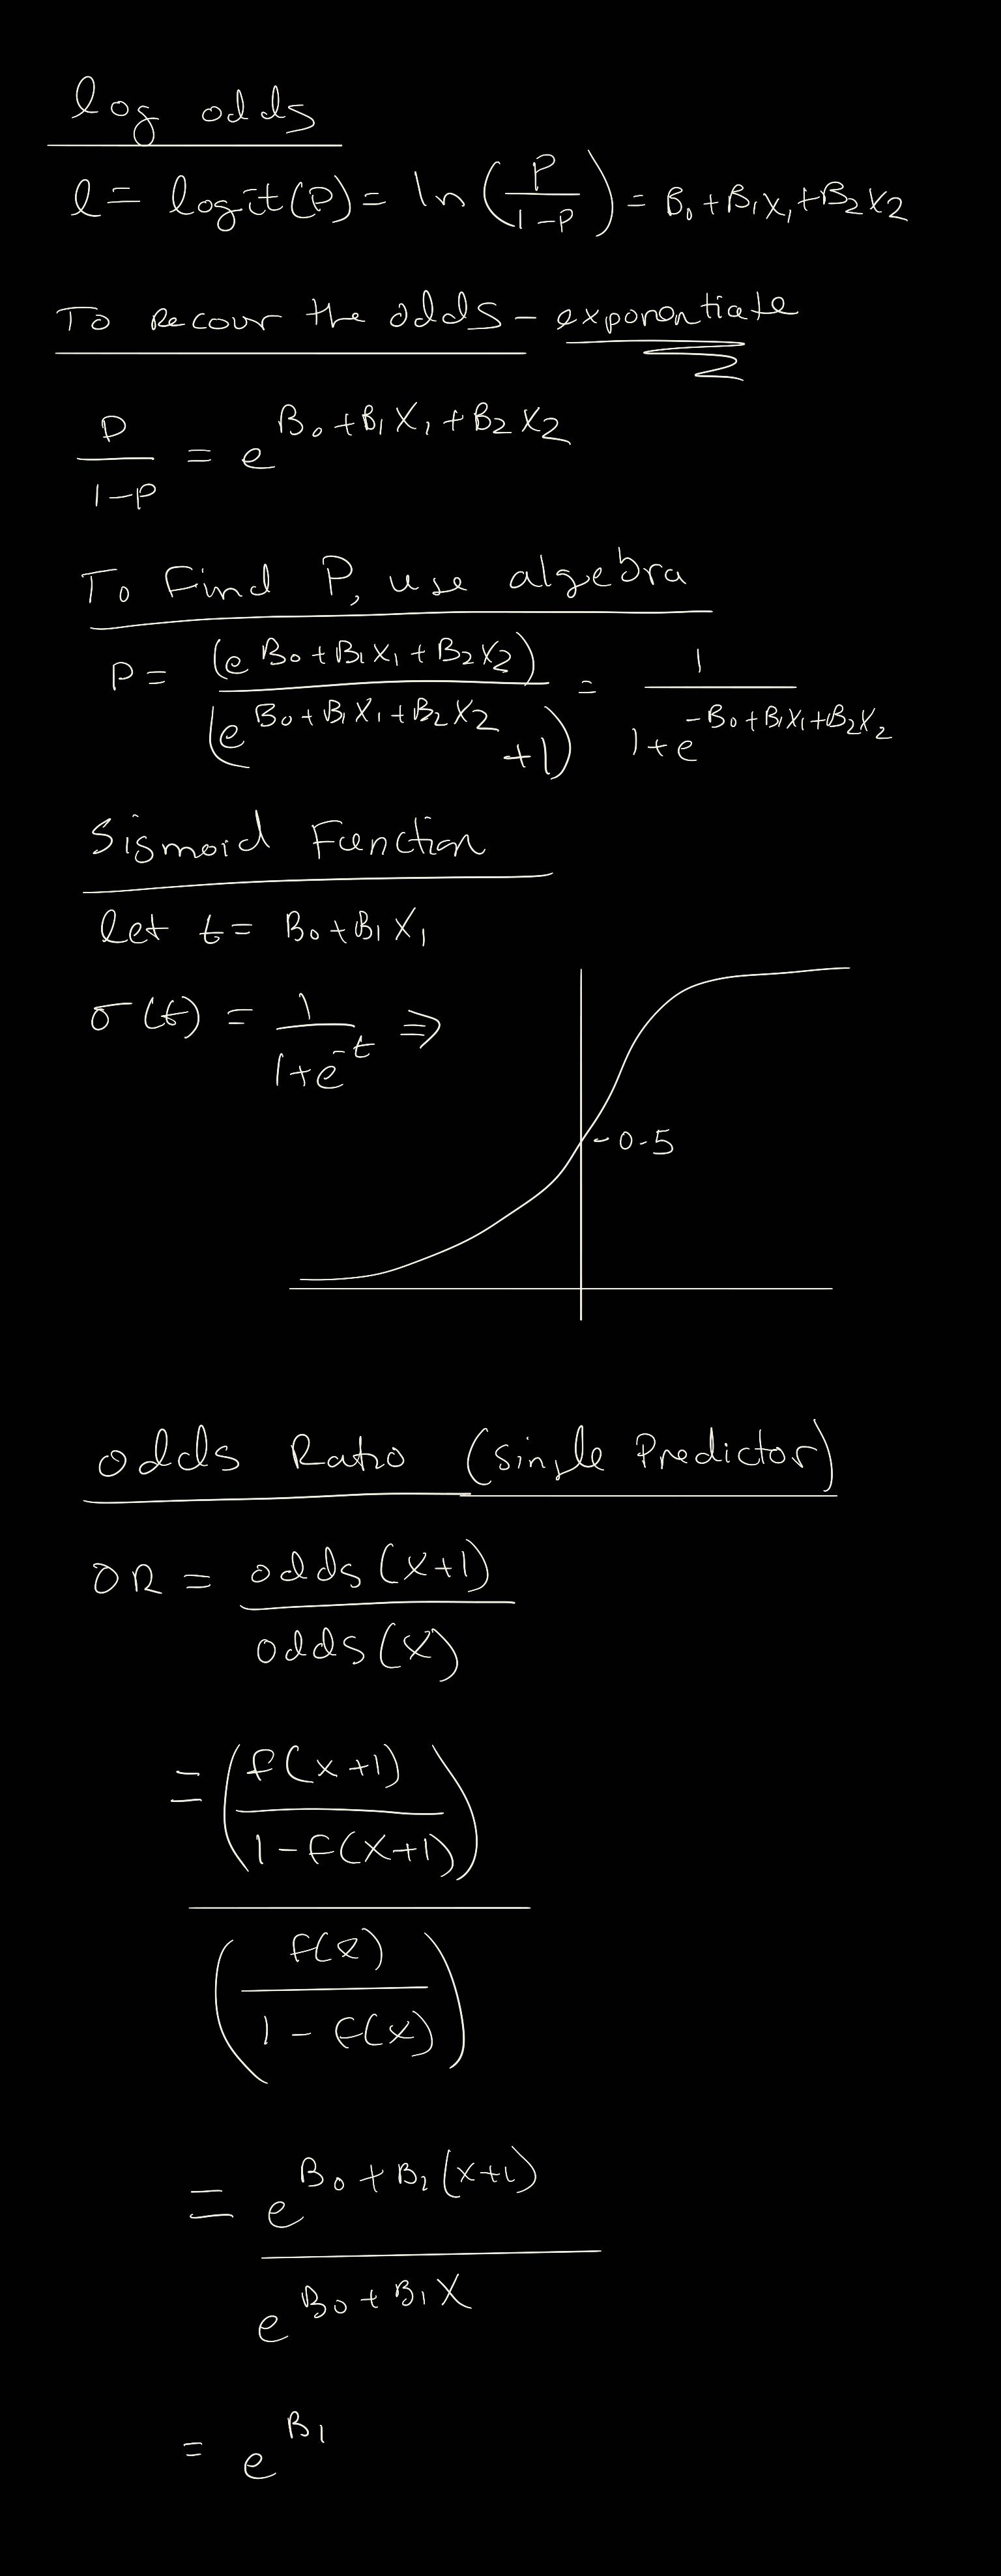 log odds
l = logit(P) = ln(P/(1-P)) = B₀+B₁X₁+B₂X₂
To recover the odds - exponentiate
P/(1-P) = e^(B₀+B₁X₁+B₂X₂)
To Find P, use algebra
P = (e^(B₀+B₁X₁+B₂X₂))/(e^(B₀+B₁X₁+B₂X₂) +1) = 1/(1+e^(-B₀+B₁X₁+B₂X₂))
Sigmoid Function
let t = B₀+B₁X₁
σ(t) = 1/(1+e^(-t)) ⇒
- 0.5
Odds Ratio (single Predictor)
OR = odds(x+1)/odds(x)
= (f(x+1)/(1-f(x+1)))/(f(x)/(1-f(x)))
= e^(B₀+B₁(x+1))/e^(B₀+B₁X)
= e^(B₁)